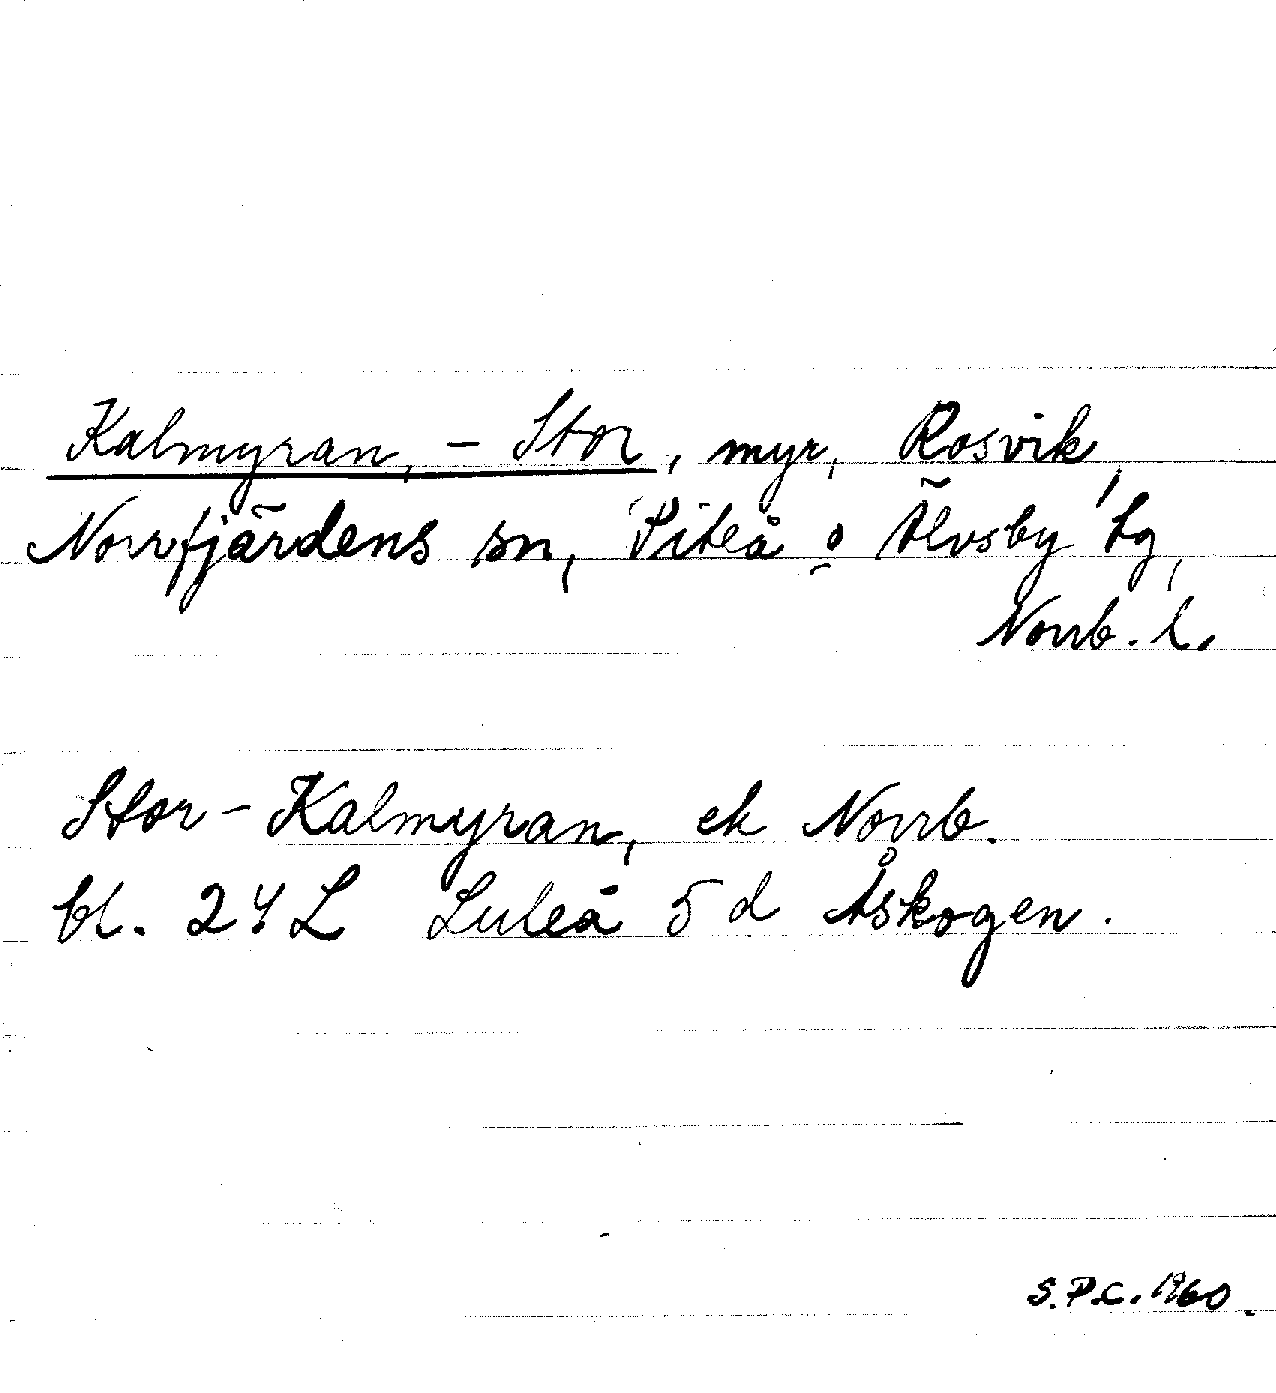 Kalmyran, - Stor, myr, Rosvik,
Norrfjärdens sn, Piteå o Älvsby tg,
Norrb. l.
Stor-Kalmyran, ek Norrb.
bl. 24 L Luleå 5 d Åskogen.
S.P.C. 1960.